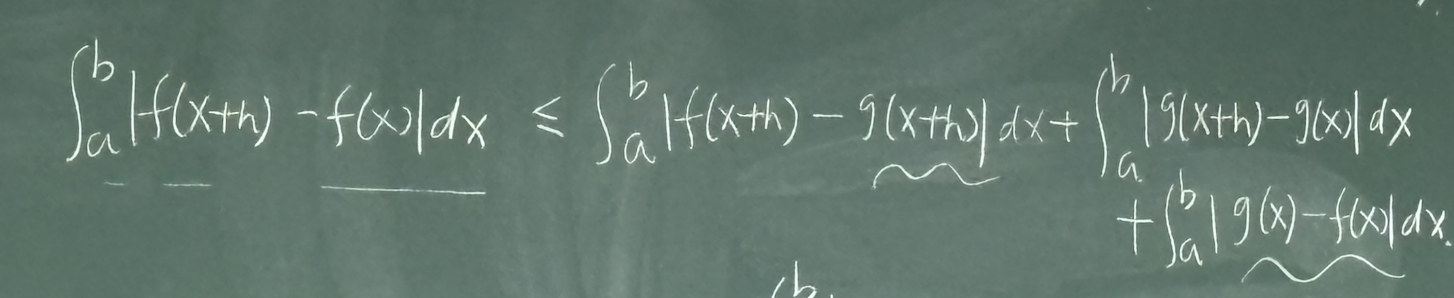 ∫_a^b |f(x+h) - f(x)| dx ≤ ∫_a^b |f(x+h) - g(x+h)| dx + ∫_a^b |g(x+h) - g(x)| dx
+ ∫_a^b |g(x) - f(x)| dx.